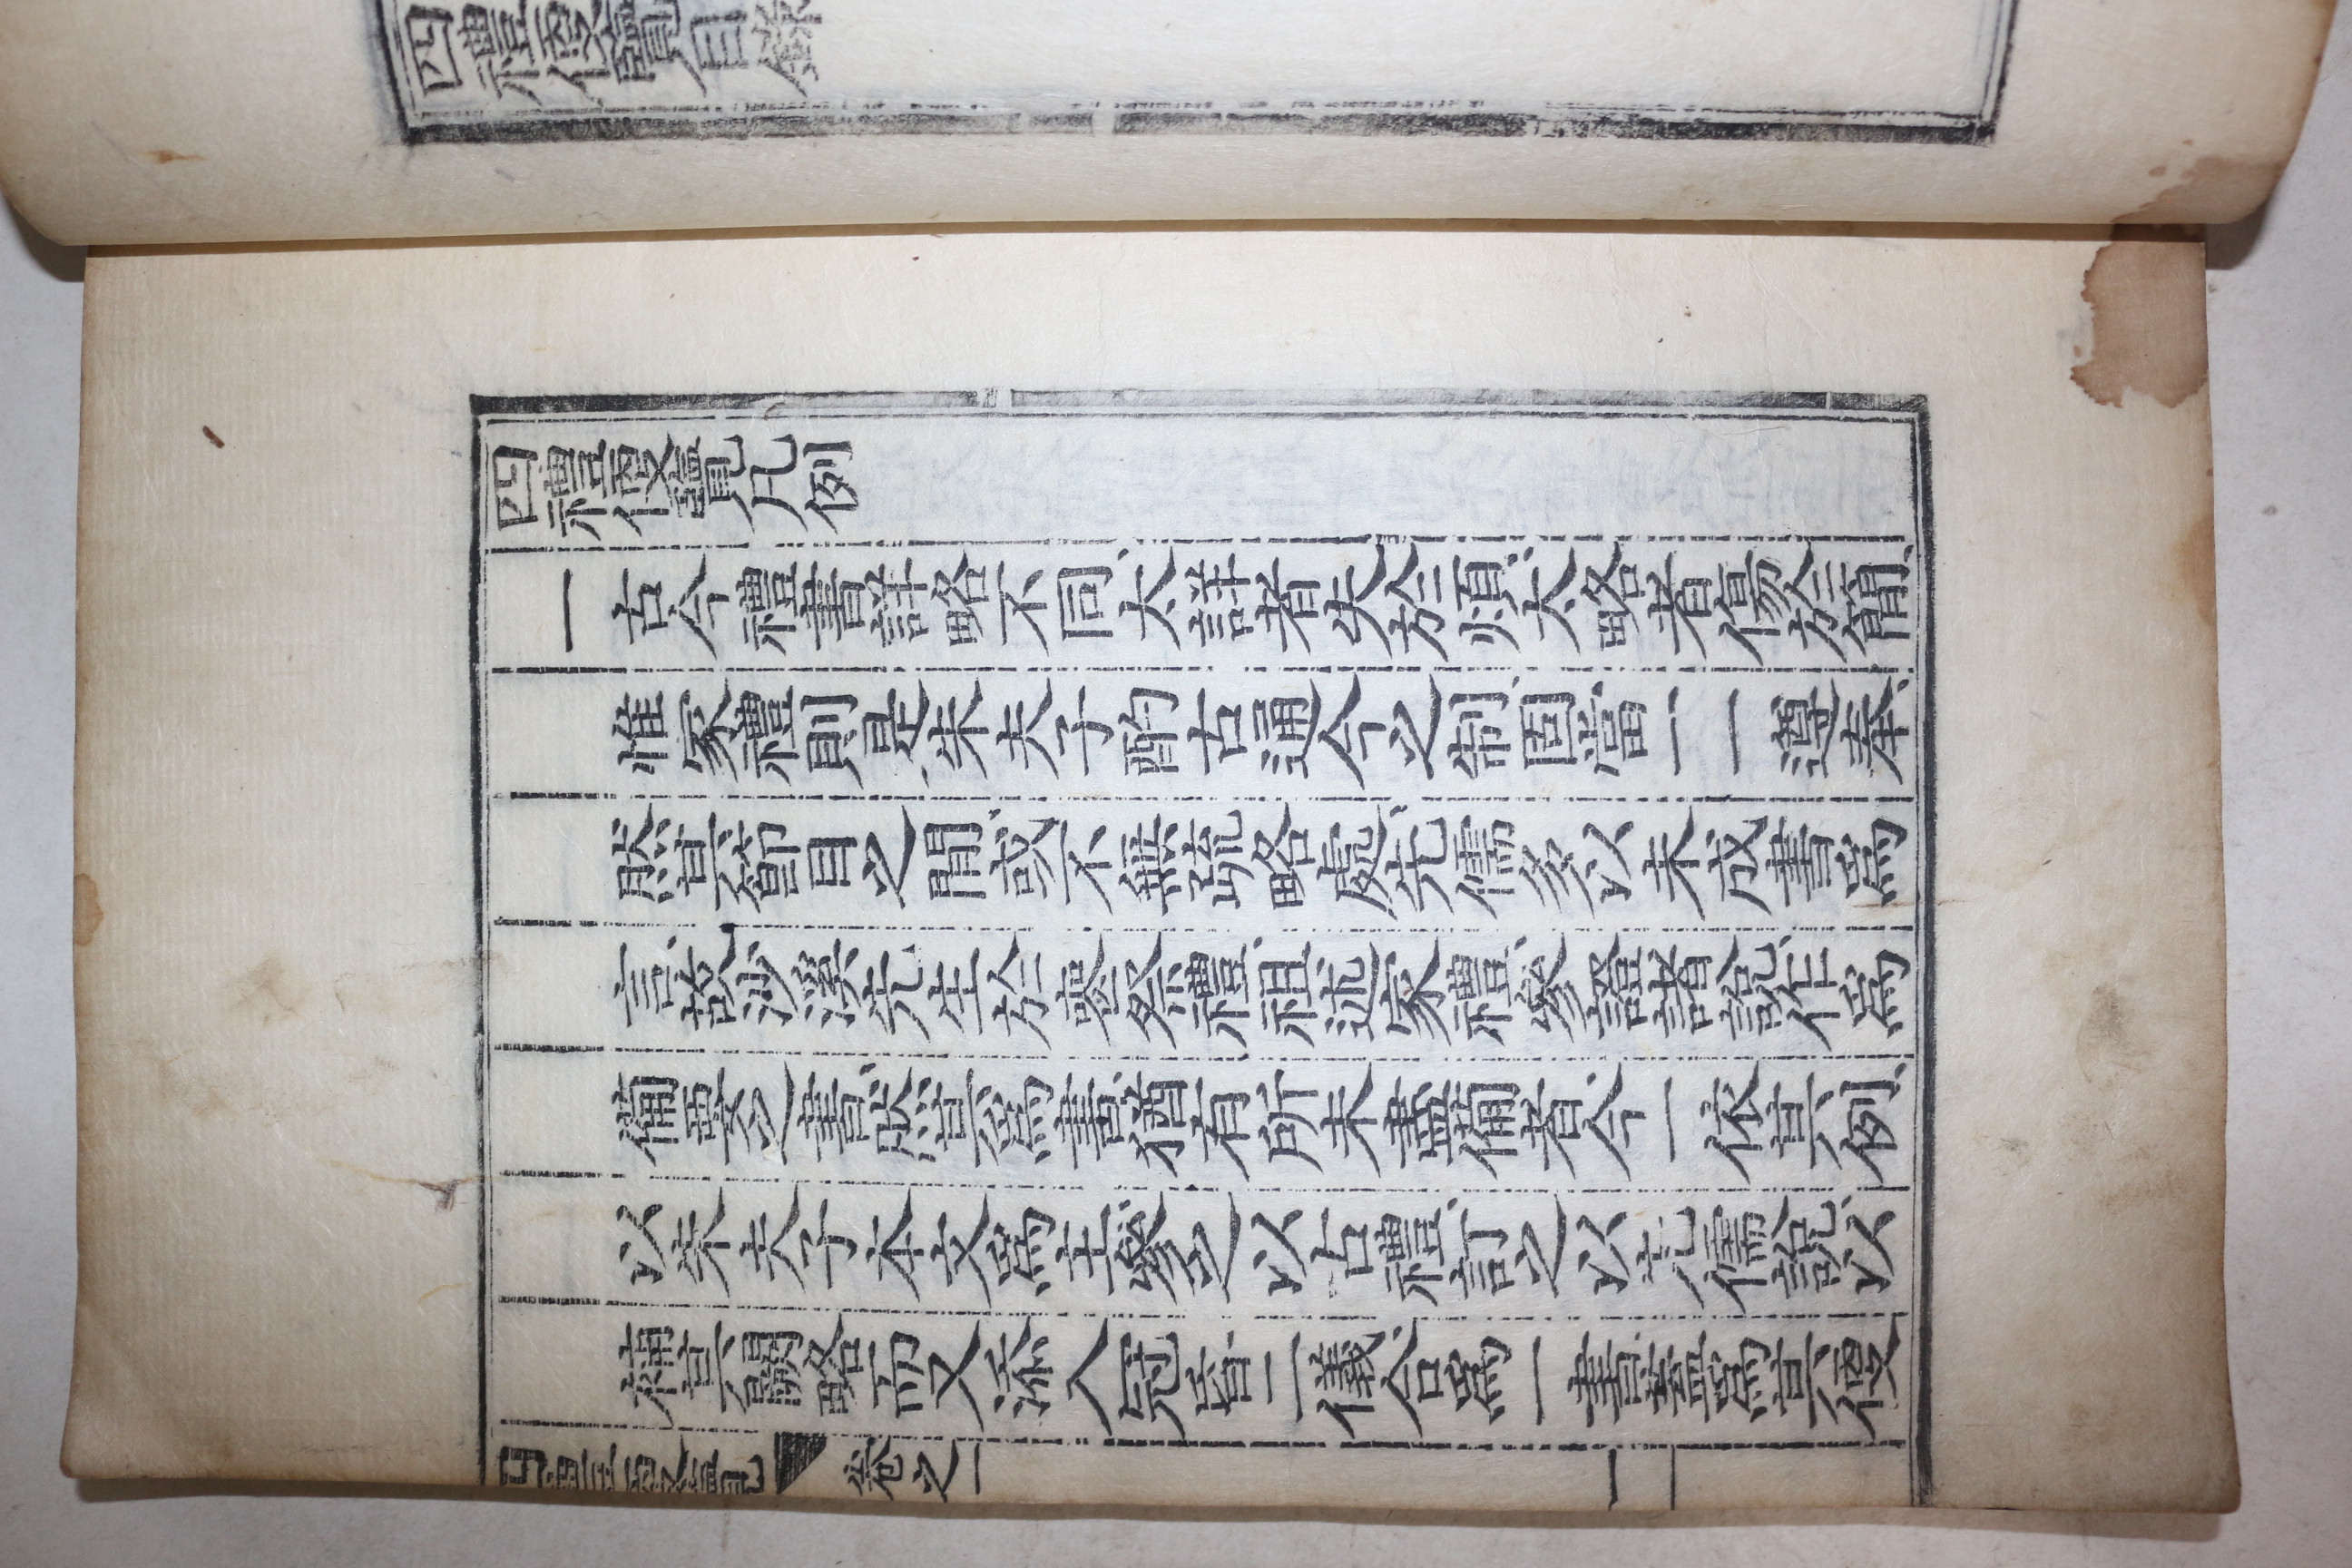 四禮便覽目錄
四禮便覽凡例
一古今禮書詳略不同太詳者失於煩太略者傷於簡
惟家禮則是朱夫子酌古通今之制固當一一遵奉
然其節目之間或不無疏略處先儒多以未成書爲
言故沙溪先生於喪祭禮祖述家禮參證諸說作爲
備要之書然其爲書猶有所未盡備者今一依其例
以朱夫子本文爲主參之以古禮訂之以先儒說以
補其闕略而又添入冠昏二儀合爲一書蓋爲其便
四禮便覽 卷之一
一